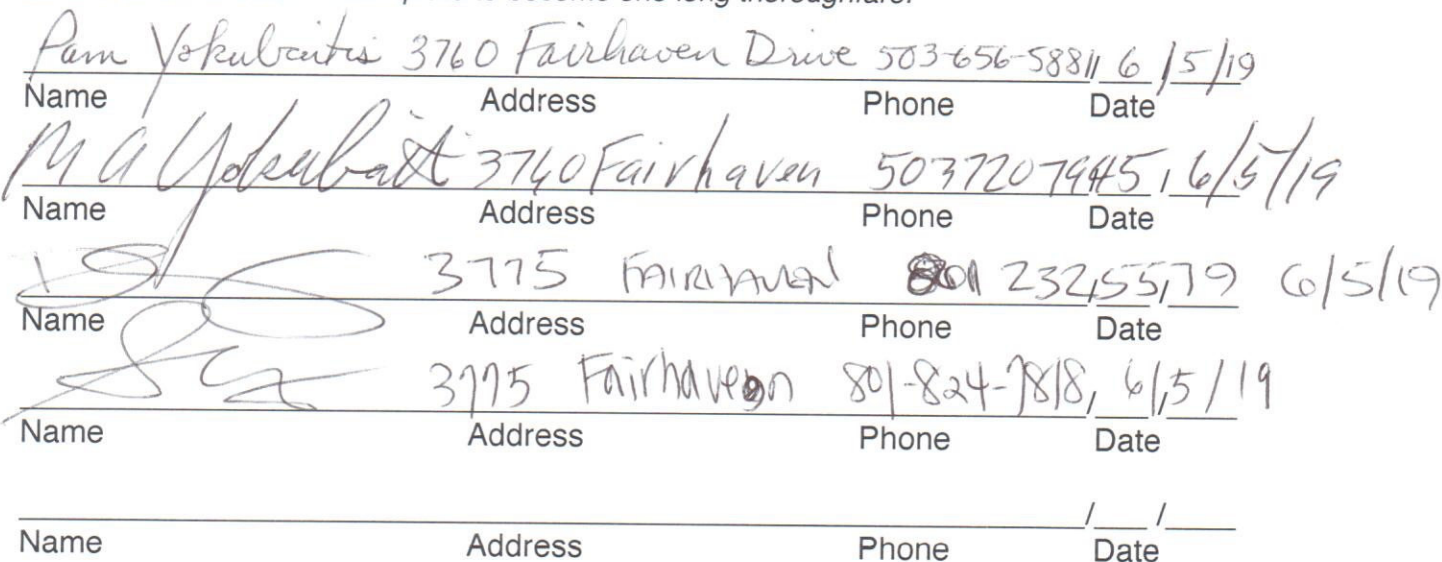 to become one long thoroughfare.
Pam Yokubaitis 3760 Fairhaven Drive 503-656-5881 6/5/19
Name Address Phone Date
M A Yokubaitis 3760 Fairhaven 5037207945 6/5/19
Name Address Phone Date
3775 FAIRHAVEN 801 232 5579 6/5/19
Name Address Phone Date
3775 Fairhaven 801-824-7818, 6/5/19
Name Address Phone Date
/ /
Name Address Phone Date